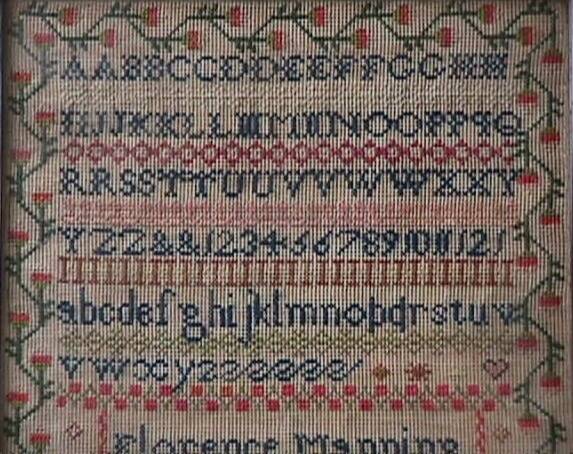 AABBCCDDEEFFGGHH
IIJJKKLLMMNNOOPPQQ
RRSSTTUUVVWWXXY
YZZ&&1234
abcdefghijklmnopqrstuv
vwxyz
Florence Manning